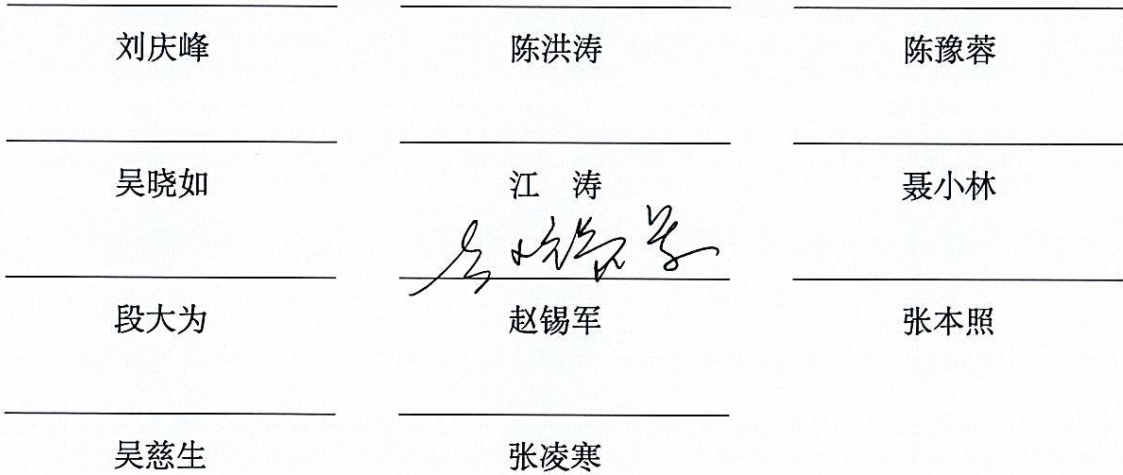 刘庆峰 陈洪涛 陈豫蓉
吴晓如 江 涛 聂小林
段大为 赵锡军 张本照
吴慈生 张凌寒